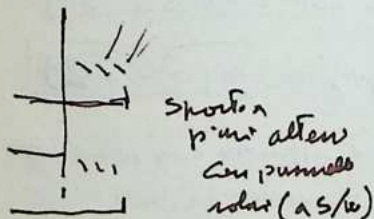 sporti a
piani alterni
con pannelli
solari (a S/W)